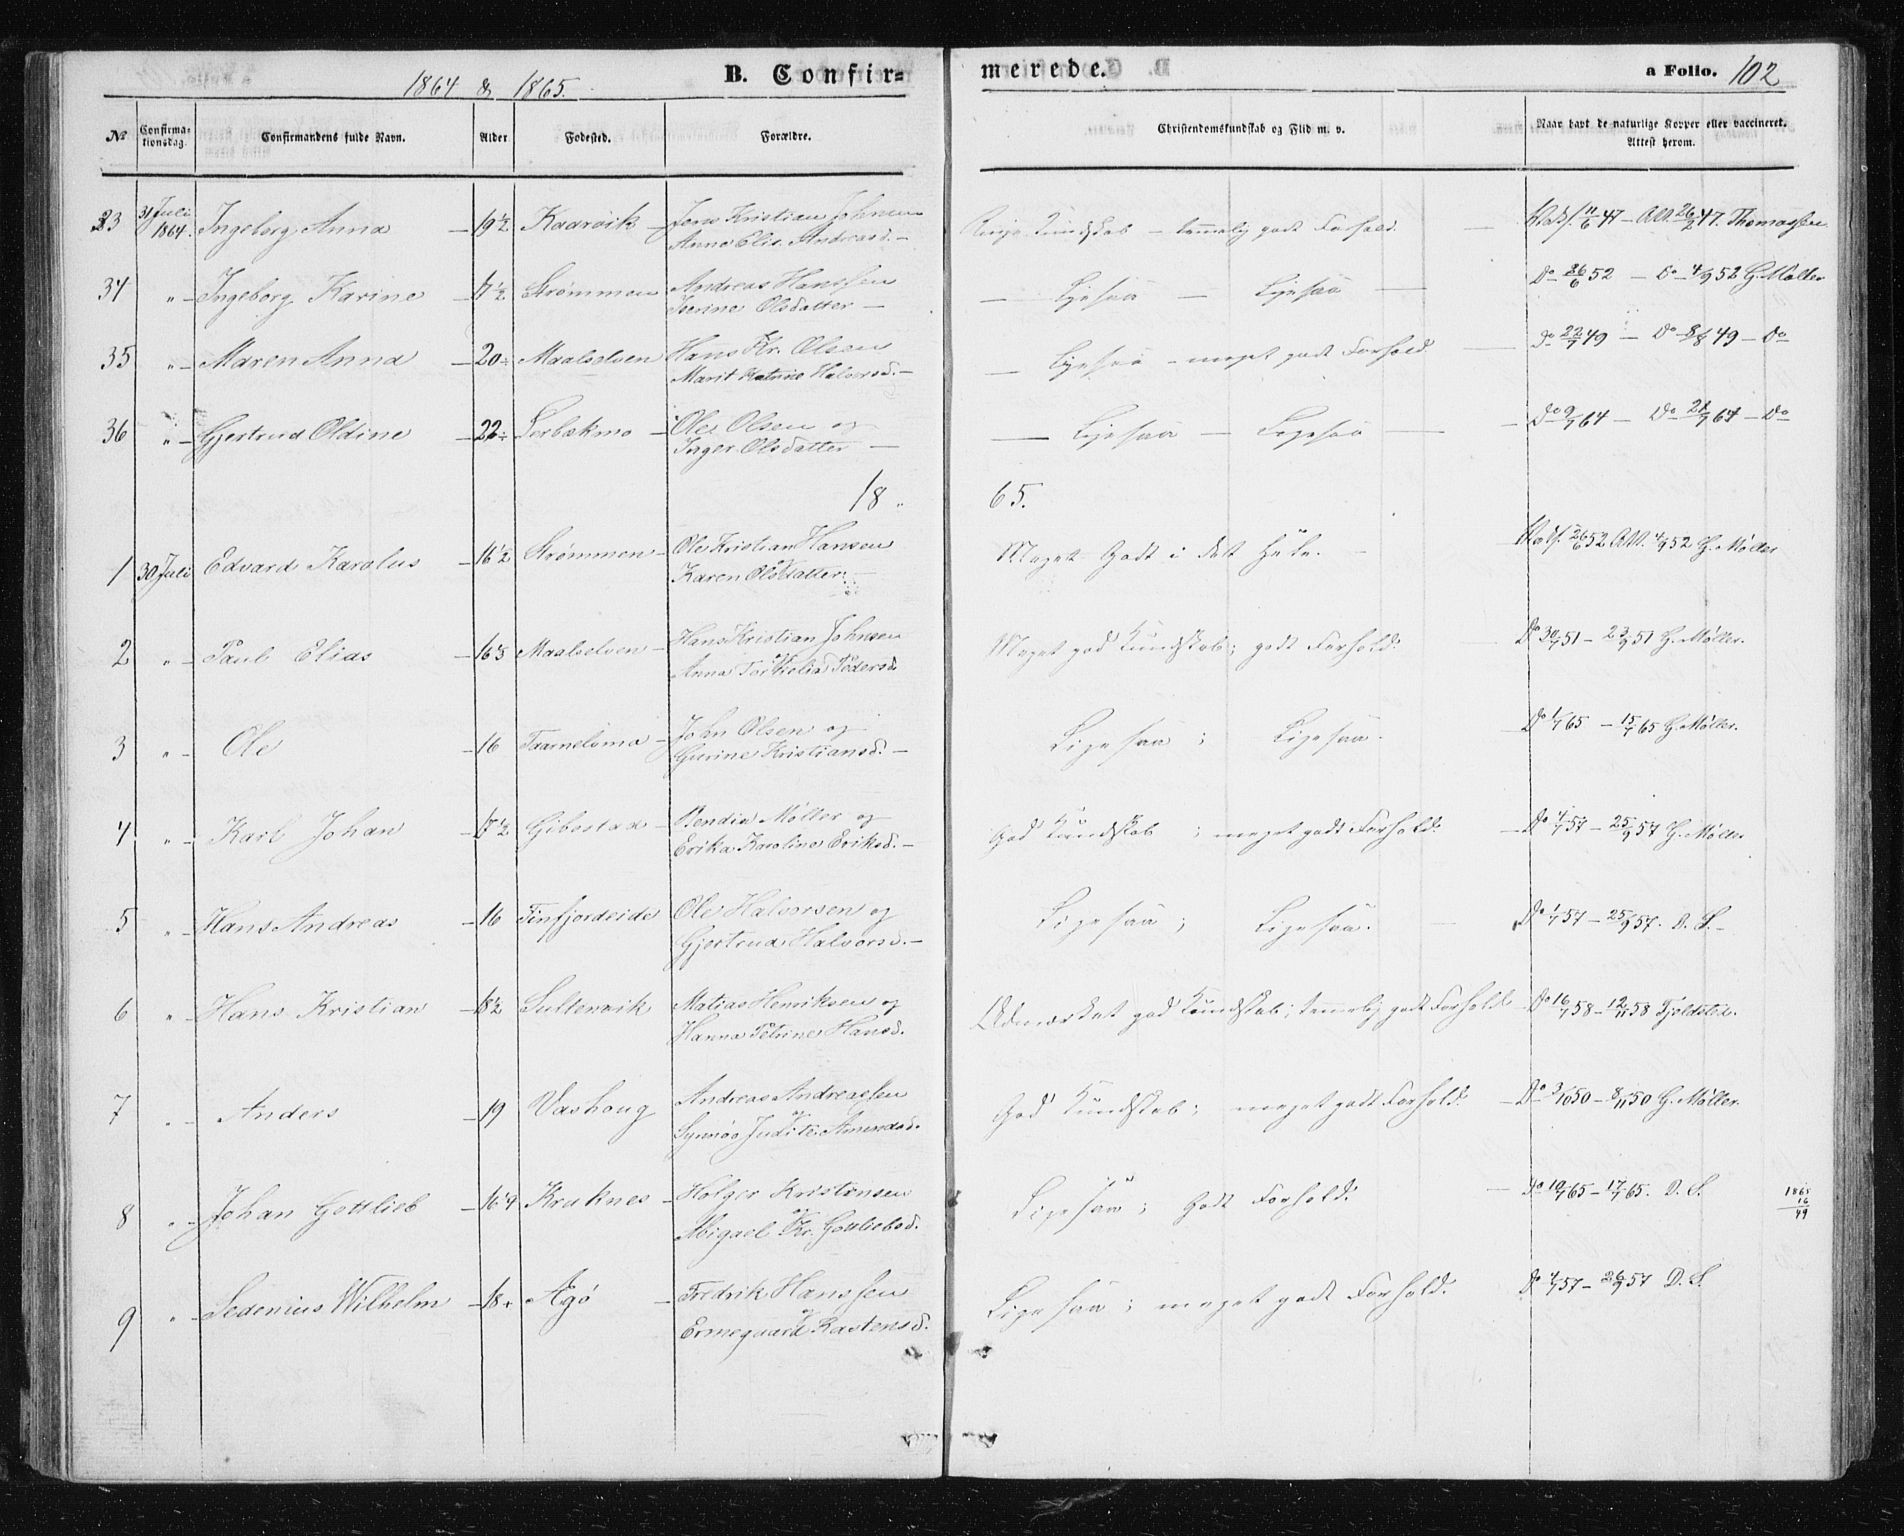 1864 & 1865.
B. Confir=
merede.
a Folio. 102
No
Confirma-
tionsdag.
Confirmandens fulde Navn.
Alder
Fødested.
Forældre.
Christendomskundskab og Flid m. v.
Naar havt de naturlige Kopper eller vaccineret.
Attest herom.
33 31 Juli 1864. Ingeborg Anna — 19½ Kaarvik — Jens Kristian Johnsen
Anne Elis. Andreasd. —
Kundskab — temmelig godt Forhold. — 11/6 47 — Att. 26/2 47. Thomassen
34 " — Ingeborg Karine — 17½ Strømmen Andreas Hanssen
Iverine Olsdatter —
— Ligesaa — Ligesaa — Do 26/6 52 — Do 4/9 52 G. Møller
35 " — Maren Anna — 20 Maalselven Hans Kr. Olsen
Marit Katrine Halvorsd. —
— Ligesaa — meget godt Forhold — Do 22/7 49 — Do 8/8 49 — Do
36 " — Gjertrud Oldine — 22 — Ole Olsen og
Inger Olsdatter —
— Ligesaa — Ligesaa — — Do 9/7 64 — Do 21/7 64 — Do
18 65.
1 30 Juli Edvard Karolus — 16½ Strømmen — Ole Kristian Hansen
og
Karen Olsdatter. —
Meget Godt i det Hele. — 26/6 52 Att. 4/9 52 G. Møller
2 " — Paul Elias — 16 Maalselven — Hans Kristian Johnsen
og
Anna Pedersd.
Meget god Kundskab; godt Forhold. — Do 30/7 51 — 23/9 51 G. Møller.
3 " — Ole — 16 — John Olsen og
Gurine Kristiansd. —
Ligesaa; Ligesaa. Do 1/7 65 — 15/7 65 G. Møller.
4 " — Karl Johan — 17½ Gibostad — Møller og
Erika Karoline Eriksd. —
God Kundskab; meget godt Forhold. — Do 4/7 57 — 25/9 57 G. Møller
5 " — Hans Andreas — 16 Finfjordeide Ole Halvorsen og
Gjertrud Halvorsd. —
Ligesaa; Ligesaa. — Do 1/7 57 — 25/9 57. D. S. —
6 " — Hans Kristian — 18½ Sultenvik Matias Henriksen og
Hanna Petrine Hansd.
Udmærket god Kundskab; temmelig godt Forhold — Do 16/7 58 — 12/11 58
7 " — Anders — 19 Vashaug Andreas Andreassen
og
Synnøe Judite Amundsd.
God Kundskab; meget godt Forhold. — Do 3/10 50 — 8/11 50 G. Møller.
8 " — Johan Gottlieb — 16 Kraknes — Holger Kristensen
og
Abigael Kr. Gottliebsd.
Ligesaa; Godt Forhold. — Do 10/7 65 — 17/7 65. D. S.
1865
16
49
9 " — Sedenius Wilhelm — 18 Agö — Fredrik Hanssen
og
Ermegaard Kastensd.
Ligesaa; meget godt Forhold. Do 4/7 57 — 26/9 57 D. S.